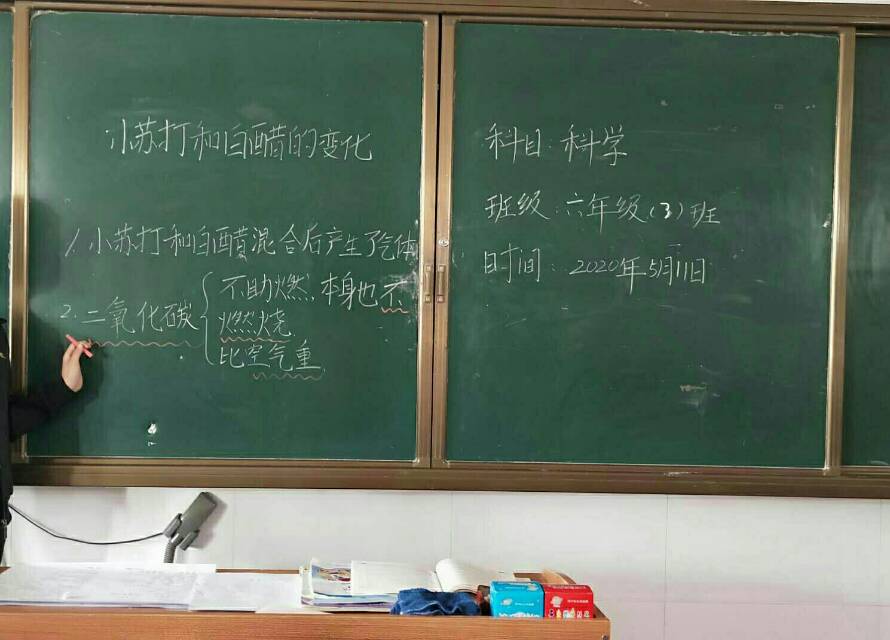 小苏打和白醋的变化
1.小苏打和白醋混合后产生了气体
2.二氧化碳{不助燃,本身也不
燃烧
比空气重.
科目:科学
班级:六年级(3)班
时间:2020年5月11日